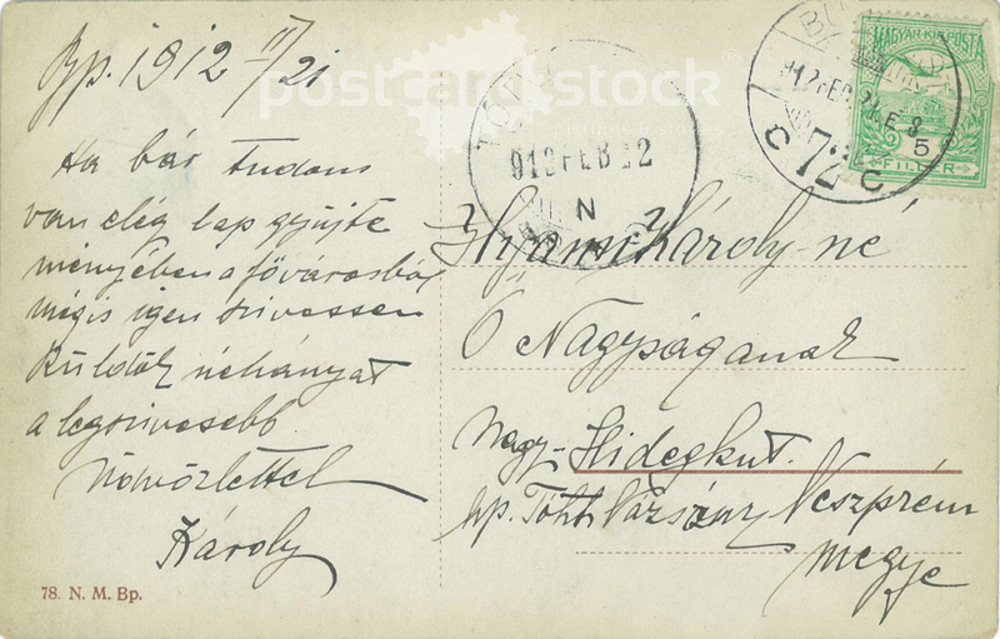 Bp. 1912 II/21
Ha bár tudom
van elég lap gyüjte
ményében a fővárosból
mégis igen szivessen
küldök néhányat
a legszivesebb
üdvözlettel
Károly
78. N. M. Bp.
postcard stock
pictures & stories
912 FEB 22
N
BUDAPEST
912 FEB
C 72 C
MAGYAR KIR. POSTA
5
FILLÉR
Károly-né
Ő Nagyságanak
Nagy-Hidegkut.
up. Tóth Vázsony Veszprém
megye